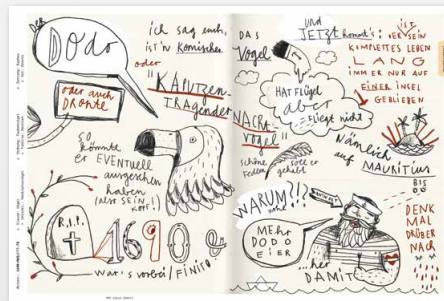 DER
DODO
oder auch
DRONTE
ich sag euch,
ist'n Komischer
oder
"KAPUTZEN-
TRAGENDER
NACHT-
VOGEL"
SO
könnte
er EVENTUELL
ausgesehen
haben
(also SEIN
KOPF!)
R.I.P.
1690
war's vorbei / FINITO
DAS
Vogel
und
JETZT kommt's:
HAT FLÜGEL
aber
fliegt nicht
schöne
Federn
soll er
gehabt
IST
ER SEIN
KOMPLETTES LEBEN
LANG
IMMER NUR AUF
EINER INSEL
GEBLIEBEN
Nämlich
auf MAURITIUS
BIS
WARUM?!?
und
MEHR
DODO
EIER
...her
DAMIT
DENK
MAL
DRÜBER
NACH